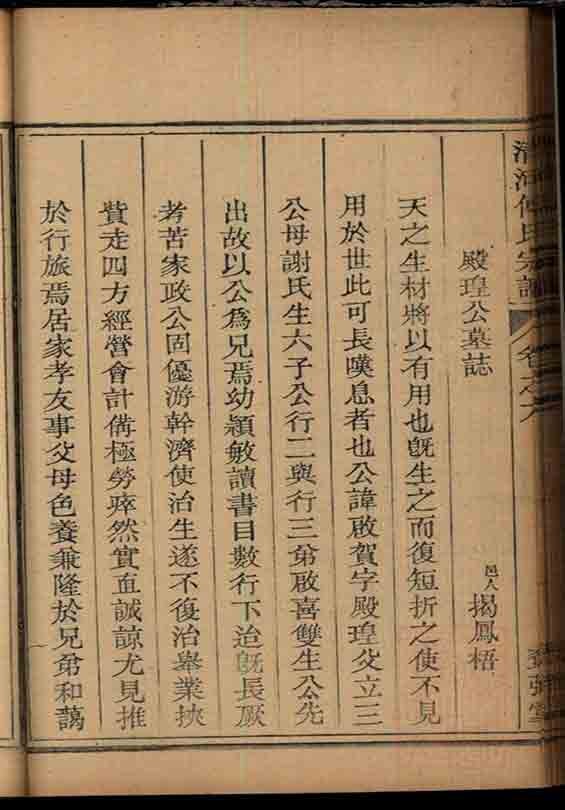 殿瑝公墓誌
邑人 揭鳳梧
天之生材將以有用也旣生之而復短折之使不見
用於世此可長嘆息者也公諱啟賀字殿瑝父立三
公母謝氏生六子公行二與行三弟啟喜雙生公先
出故以公爲兄焉幼穎敏讀書目數行下迨旣長厥
考苦家政公固優游幹濟使治生遂不復治舉業挾
貲走四方經營會計備極勞瘁然實直誠諒尤見推
於行旅焉居家孝友事父母色養兼隆於兄弟和藹
氏宗譜
卷之六